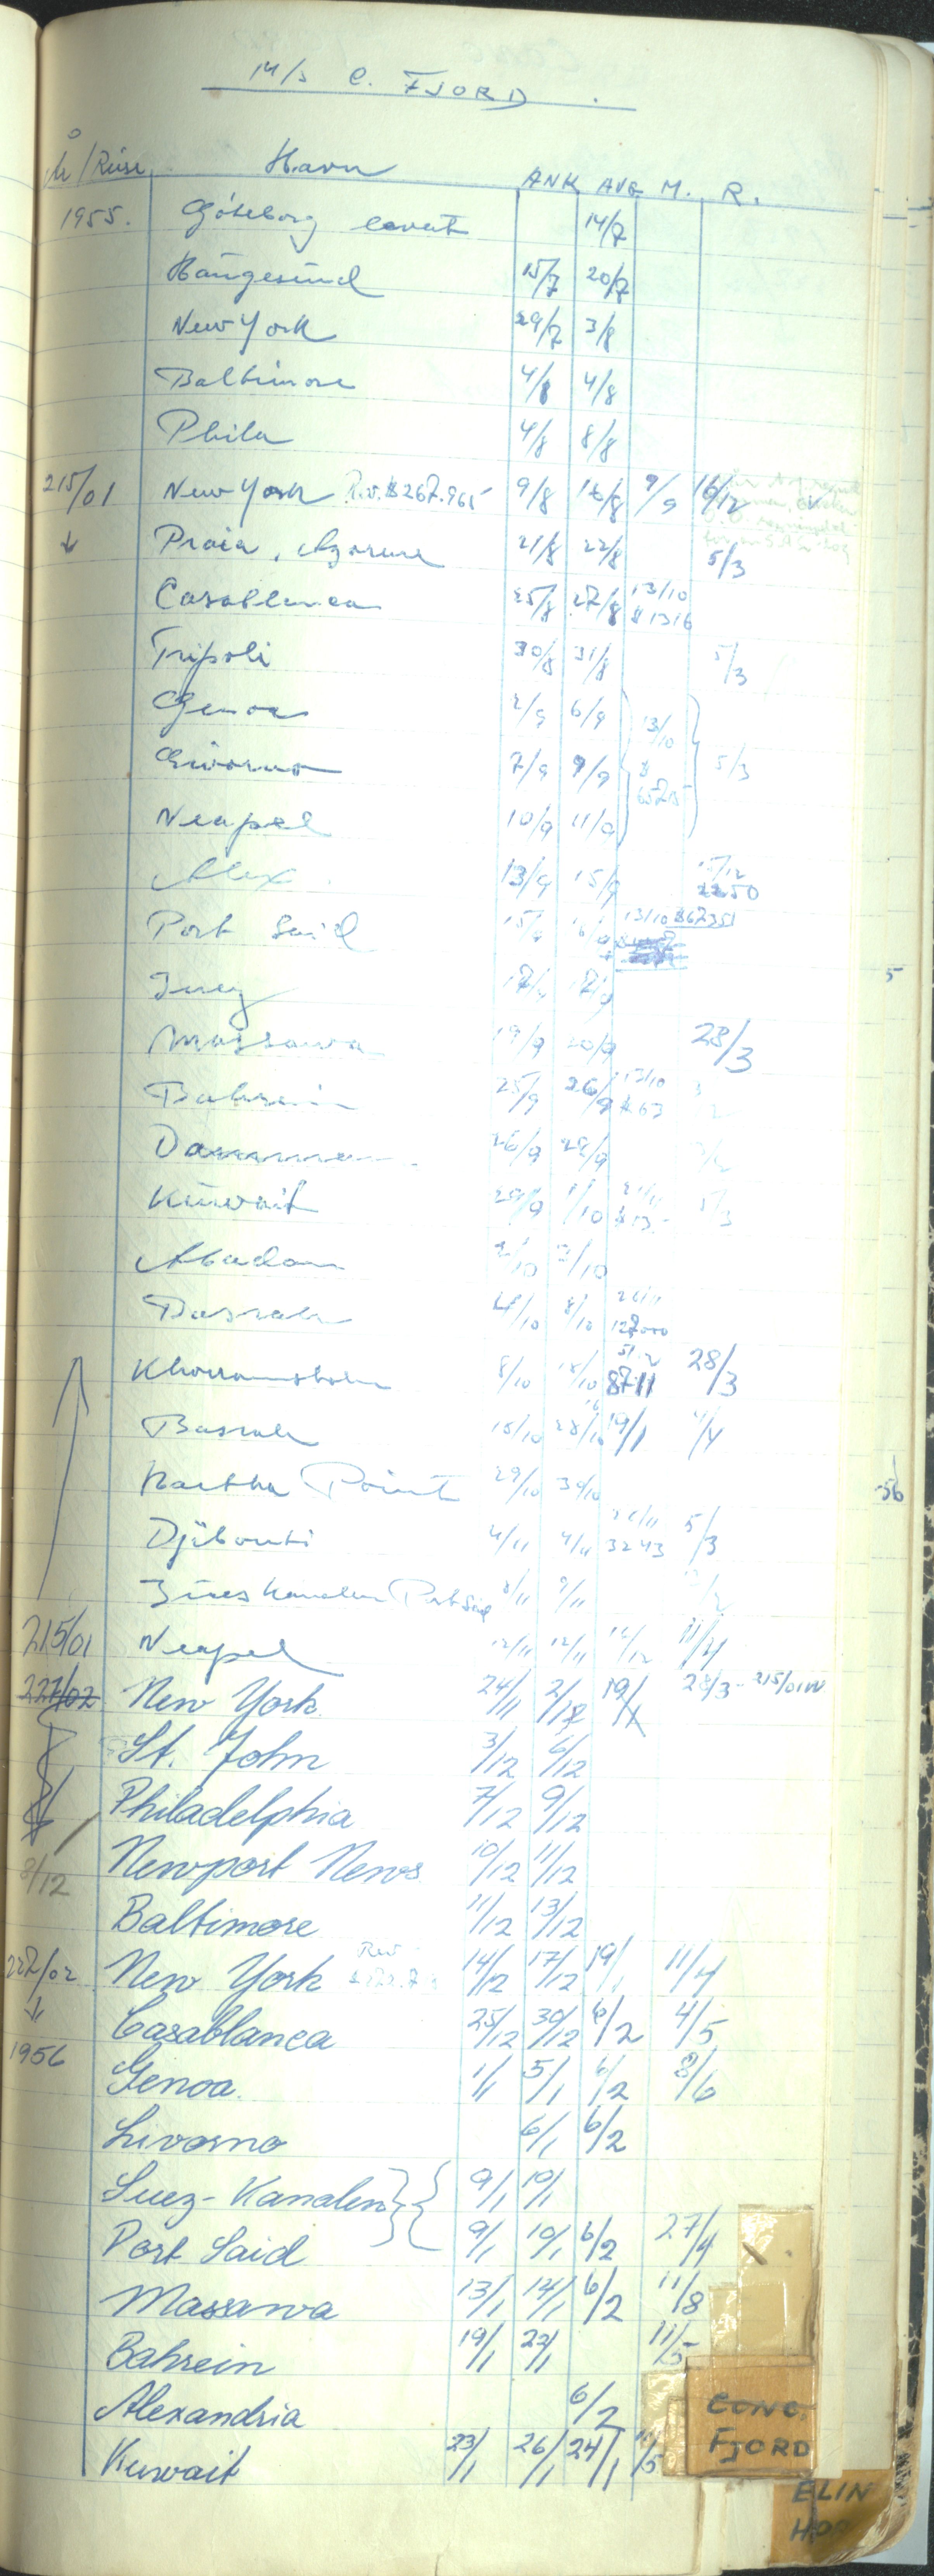 M/S C. FJORD
År/Reise Havn ANK AVG M. R.
1955. Göteborg levert 14/7
Haugesund 15/7 20/7
New York 29/7 3/8
Baltimore 4/8 4/8
Phila 4/8 8/8
215/01 New York R.v. $267.965 9/8 16/8 9/9 16/12
Praia, Azorene 21/8 22/8 5/3
Casablanca 25/8 27/8 13/10 $1316
Tripoli 30/8 31/8 5/3
Genoa 2/9 6/9 13/10
Livorno 7/9 9/9 $ 5/3
Neapel 10/9 11/9
Alex 13/9 15/9 15/12 2250
Port Said 15/9 16/9 13/10 $67351
Suez 17/9 17/9
Massawa 19/9 20/9 28/3
Bahrein 25/9 26/9 13/10 $63
Dammam 26/9 28/9
Kuwait 29/9 1/10
Abadan 2/10 3/10
Basrah 4/10 8/10
Khorramshahr 8/10 8711 28/3
Basrah 15/10 28/10 19/1 4/4
Kartha Point 29/10 30/10
Djibouti 4/11 4/11 3243 5/3
Suez Kanalen Port Said 8/11 9/11
215/01 Neapel 12/11 12/11 11/4
227/02 New York 24/11 2/12 28/3 - 215/01
St. John 3/12 6/12
Philadelphia 7/12 9/12
3/12 Newport News 10/12 11/12
Baltimore 11/12 13/12
227/02 New York 14/12 17/12 19/1 11/4
Casablanca 25/12 30/12 6/2 4/5
1956 Genoa 1/1 5/1 6/2 8/6
Livorno 6/1 6/2
Suez-Kanalen 9/1 10/1
Port Said 9/1 10/1 6/2 27/4
Massawa 13/1 14/1 6/2 11/8
Bahrein 19/1 22/1 11/5
Alexandria 6/2
Kuwait 23/1 26/1 24/1
CONC.
FJORD
ELIN
HOR
5
56